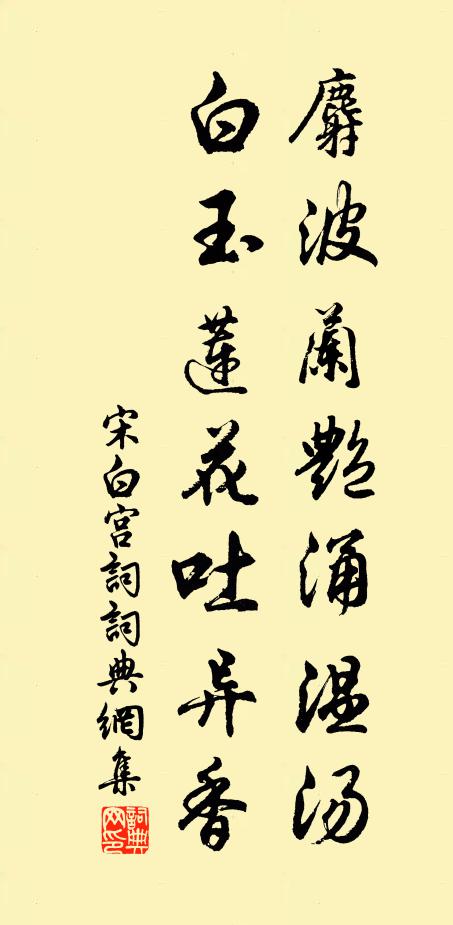 麝波蘭艷涌温汤
白玉蓮花吐异香
宋白宫詞詞典網集
詞典网印